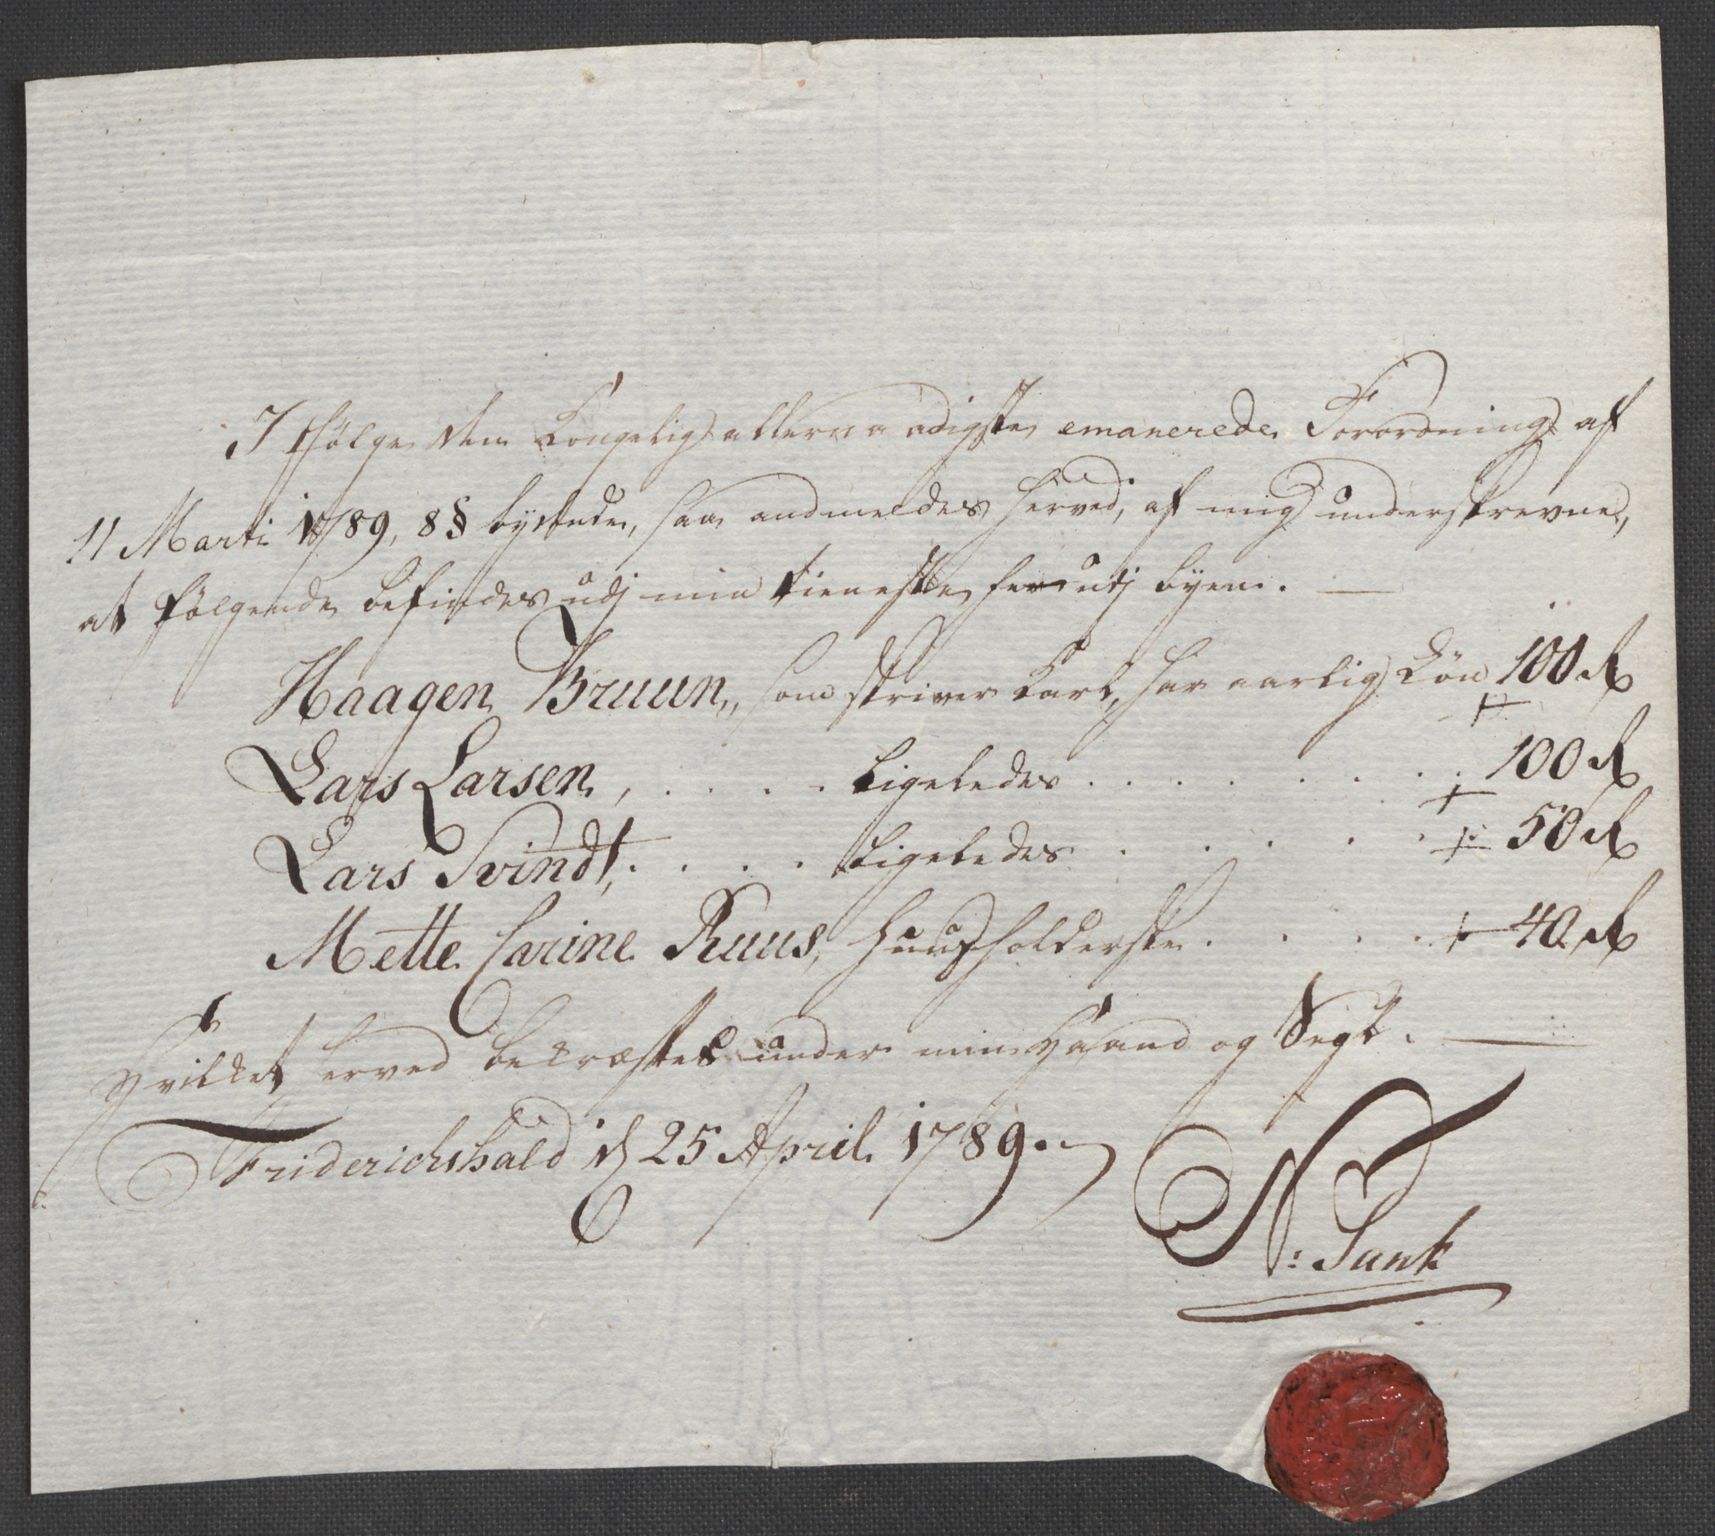 I Følge den Kongelig allernaadigste emanerede Forordning af
11 Marti 1789, 8§ bydende, saa andmeldes herved, af mig underskrevne,
at følgende befindes udj min tieneste her udj byen.
Haagen Bruun, som skriver Karl, har aarlig Løn 100 R
Lars Larsen, . . . . Ligeledes . . . . . . . . 100 R
Lars Svindt, . . . . Ligeledes . . . . . 50 R
Mette Carine Ruus, Huusholderske . . . . 40 R
Hvilket herved bekræftes under min Haand og Segl.
Friderichshald d 25 April 1789.
N: Tank